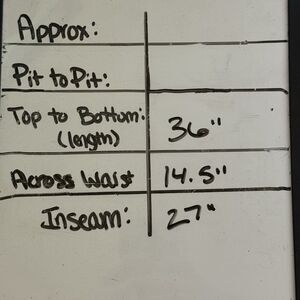 Approx:
Pit to Pit:
Top to Bottom: 36"
(length)
Across Waist 14.5"
Inseam: 27"